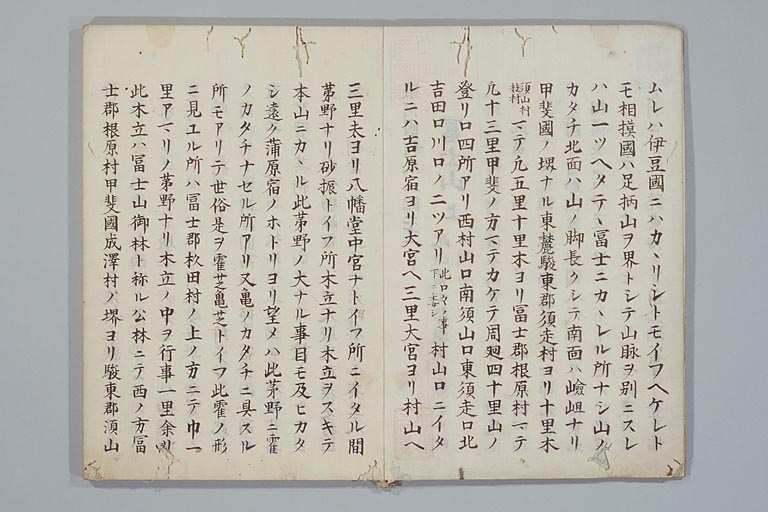 ムレハ伊豆國ニハカヽリシトモイフヘケレト
モ相摸國ハ足柄山ヲ界トシテ山脉ヲ別ニスレ
ハ山一ツヘタテヽ冨士ニカヽレル所ナシ山ノ
カタチ北面ハ山ノ脚長クシテ南面ハ嶮岨ナリ
甲斐國ノ堺ナル東麓駿東郡須走村ヨリ十里木
須山村
枝村
マテ凢五里十里木ヨリ冨士郡根原村マテ
凢十三里甲斐ノ方マテカケテ周廻四十里山ノ
登リ口四所アリ西村山口南須山口東須走口北
吉田口川口ノ二ツアリ
此口々ノ事
下ニ本シ
村山口ニイタ
ルニハ吉原宿ヨリ大宮ヘ三里大宮ヨリ村山ヘ
三里夫ヨリ八幡堂中宮ナトイフ所ニイタル間
茅野ナリ砂振トイフ所木立ナリ木立ヲスキテ
本山ニカヽル此茅野ノ大ナル事目モ及ヒカタ
シ遠ク蒲原宿ノホトリヨリ望メハ此茅野ニ霍
ノカタチナセル所アリ又亀ノカタチニ具スル
所モアリテ世俗是ヲ霍芝亀芝トイフ此霍ノ形
ニ見ユル所ハ冨士郡杦田村ノ上ノ方ニテ巾一
里アマリノ茅野ナリ木立ノ中ヲ行事一里余リ
此木立ハ冨士山御林ト称ル公林ニテ西ノ方冨
士郡根原村甲斐國成澤村ノ堺ヨリ駿東郡須山